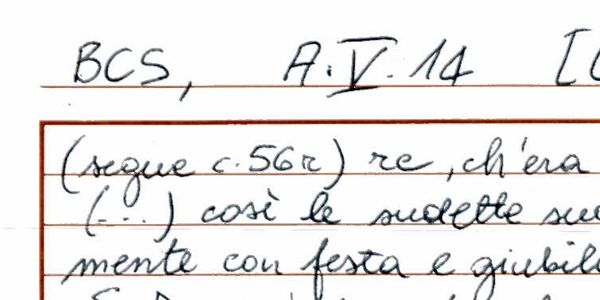 BCS, A.V.14 [
(segue c.56r) re, ch'era
(...) così le sudette
mente con festa e giubil